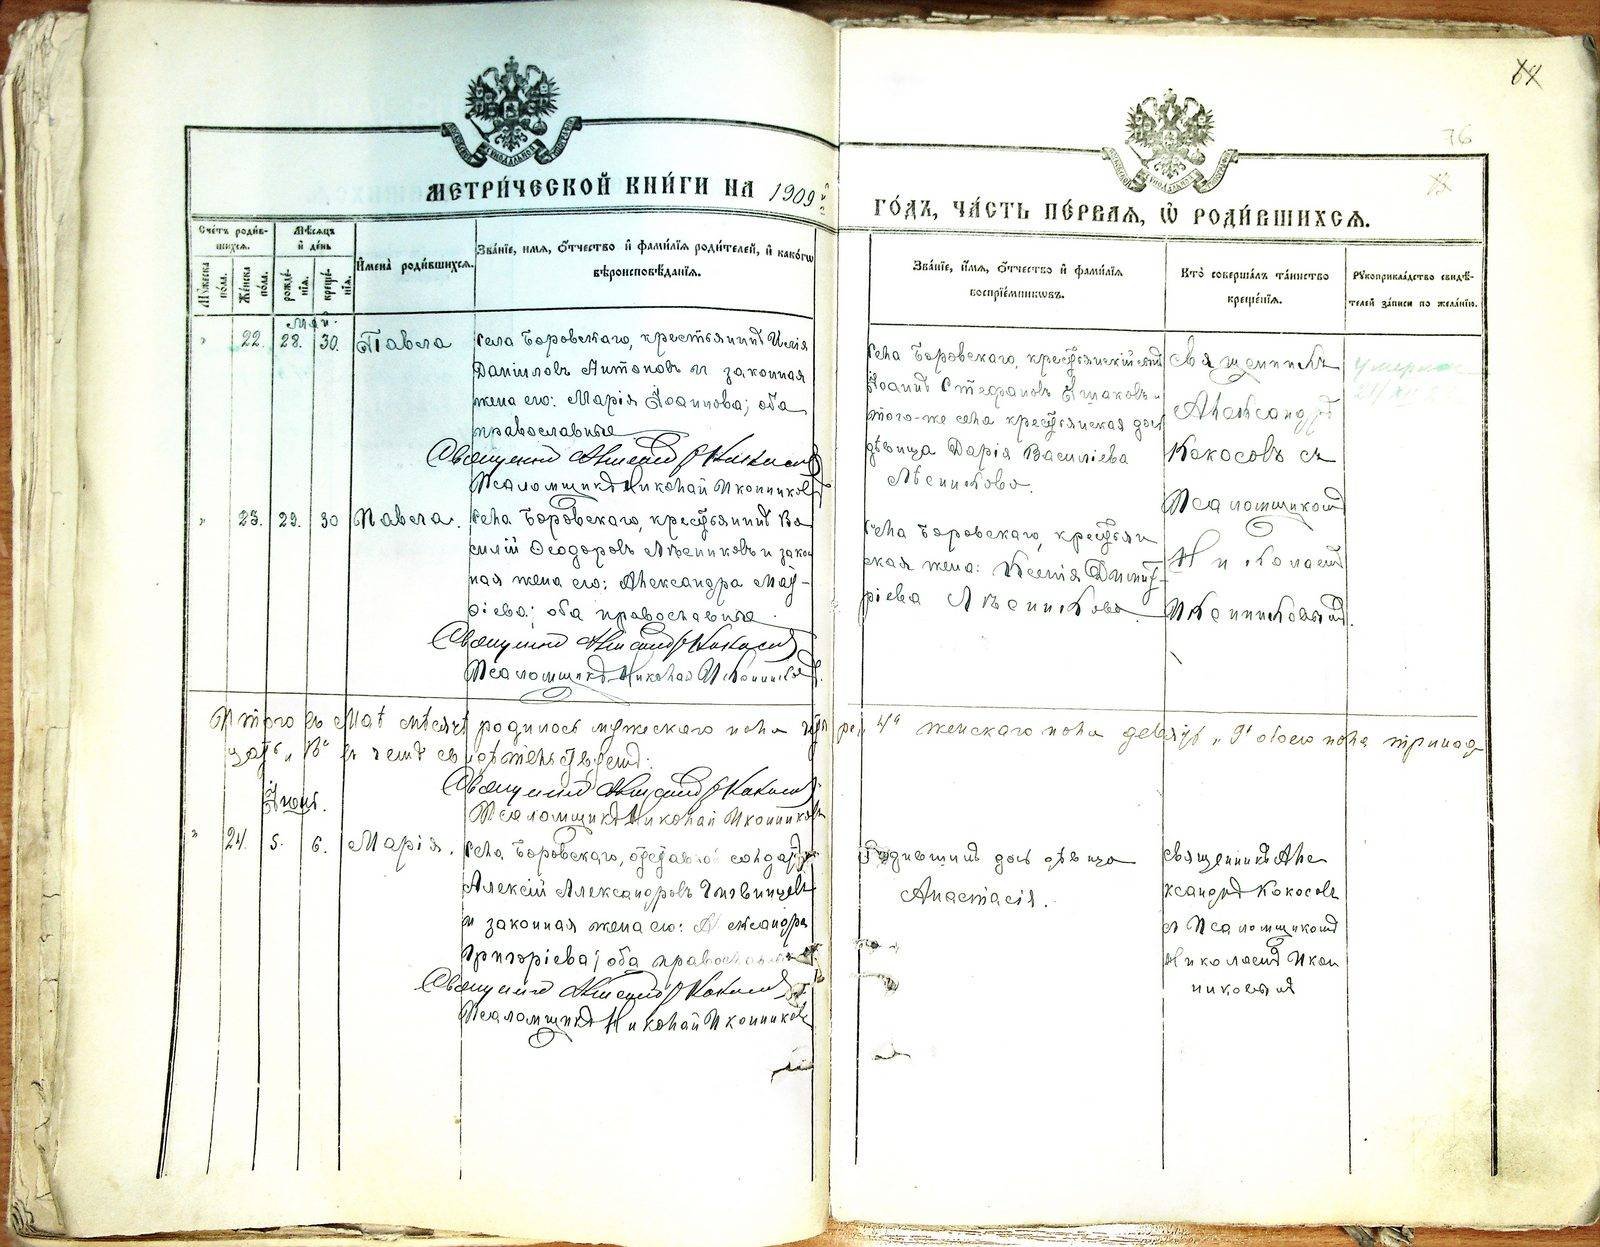 МЕТРИ́ЧЕСКОЙ КНИ́ГИ НА 1909
ГО́ДЪ, ЧА́СТЬ ПЕ́РВАЯ, Ѡ РОДИ́ВШИХСЯ.
76
Сче́тъ роди́в-
шихся.
Мѣ́сяцъ
и де́нь
Имена̀ роди́вшихся.
Зва́нїе, имя, о́тчество и фами́лїя роди́телей, и како́гѡ
вѣроисповѣ́данїя.
Му́жеска
по́ла.
Же́нска
по́ла.
рожде́-
нїя.
креще́-
нїя.
Зва́нїе, и́мя, о́тчество и фами́лїя
воспрїе́мниковъ.
Кто̀ соверша́лъ та́инство
креще́нїя.
Рукоприкла́дство свидѣ́-
телей за́писи по жела́нїю.
Май.
22. 28. 30. Павла
Села Боровскаго, крестьянинъ Илія
Даниловъ Антоновъ и законная
жена его: Марія Іоаннова; оба
православные
Священникъ Александръ Кокосовъ
Псаломщикъ Николай Иконниковъ
Села Боровскаго, крестьянскій сынъ
Іоаннъ Стефановъ и
того-же села крестьянская дочь
дѣвица Дарія Василіева
Лѣсникова.
Священникъ
Александръ
Кокосовъ съ
Псаломщикомъ
Николаемъ
Иконниковымъ.
23. 29. 30 Павла.
Села Боровскаго, крестьянинъ Ва
силій Ѳеодоровъ Лѣсниковъ и закон
ная жена его: Александра Мат-
ѳіева; оба православные
Священникъ Александръ Кокосовъ
Псаломщикъ Николай Иконниковъ.
Села Боровскаго, крестьян
ская жена: Ксенія Димит-
ріева Лѣсникова.
Итого въ Маѣ мѣсяцѣ родилось мужескаго пола четы ре „4“ женскаго пола девять „9“ обоего пола тринад
цать „13“ въ чемъ свидѣтельствуемъ:
Священникъ Александръ Кокосовъ
Псаломщикъ Николай Иконниковъ
Іюнь.
24. 5. 6. Марія.
Села Боровскаго, отставной солдатъ
Алексій Александровъ
и законная жена его: Александра
Григоріева; оба православные
Священникъ Александръ Кокосовъ
Псаломщикъ Николай Иконниковъ
Родившихъ дочь дѣвица
Анастасія.
Священникъ Але
ксандръ Кокосовъ
съ Псаломщикомъ
Николаемъ Икон
никовымъ